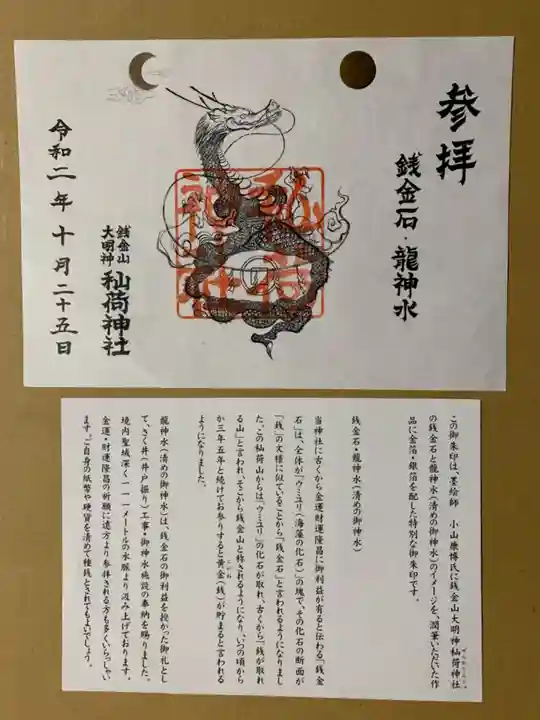 参拝
銭金石・龍神水
秘荷神社
銭金山
大明神
秈荷神社
令和二年十月二十五日
この御朱印は、墨絵師 小山康博氏に銭金山大明神秈荷神社
の銭金石と龍神水(清めの御神水)のイメージを、潤筆いただいた作
品に金箔・銀箔を配した特別な御朱印です。
銭金石・龍神水(清めの御神水)
当神社に古くから金運財運隆昌に御利益が有ると伝わる「銭金
石」は、全体が「ウミユリ(海藻の化石)」の塊で、その化石の断面が
「銭」の文様に似ていることから「銭金石」と言われるようになりまし
た。この秈荷山からは「ウミユリ」の化石が取れ、古くから「銭が取れ
る山」と言われ、そこから銭金山と称されるようになり、いつの頃から
か三年五年と続けてお参りすると黄金(銭)が貯まると言われる
ようになりました。
龍神水(清めの御神水)は、銭金石の御利益を授かった御礼とし
て、さく井(井戸掘り)工事・御神水施設の奉納を賜りました。
境内聖域深く一一一メートルの水脈より汲み上げております。
金運・財運隆昌の祈願に遠方より参拝される方も多くいらっしゃい
ます。ご自身の紙幣や硬貨を清めて種銭とされてもよいでしょう。